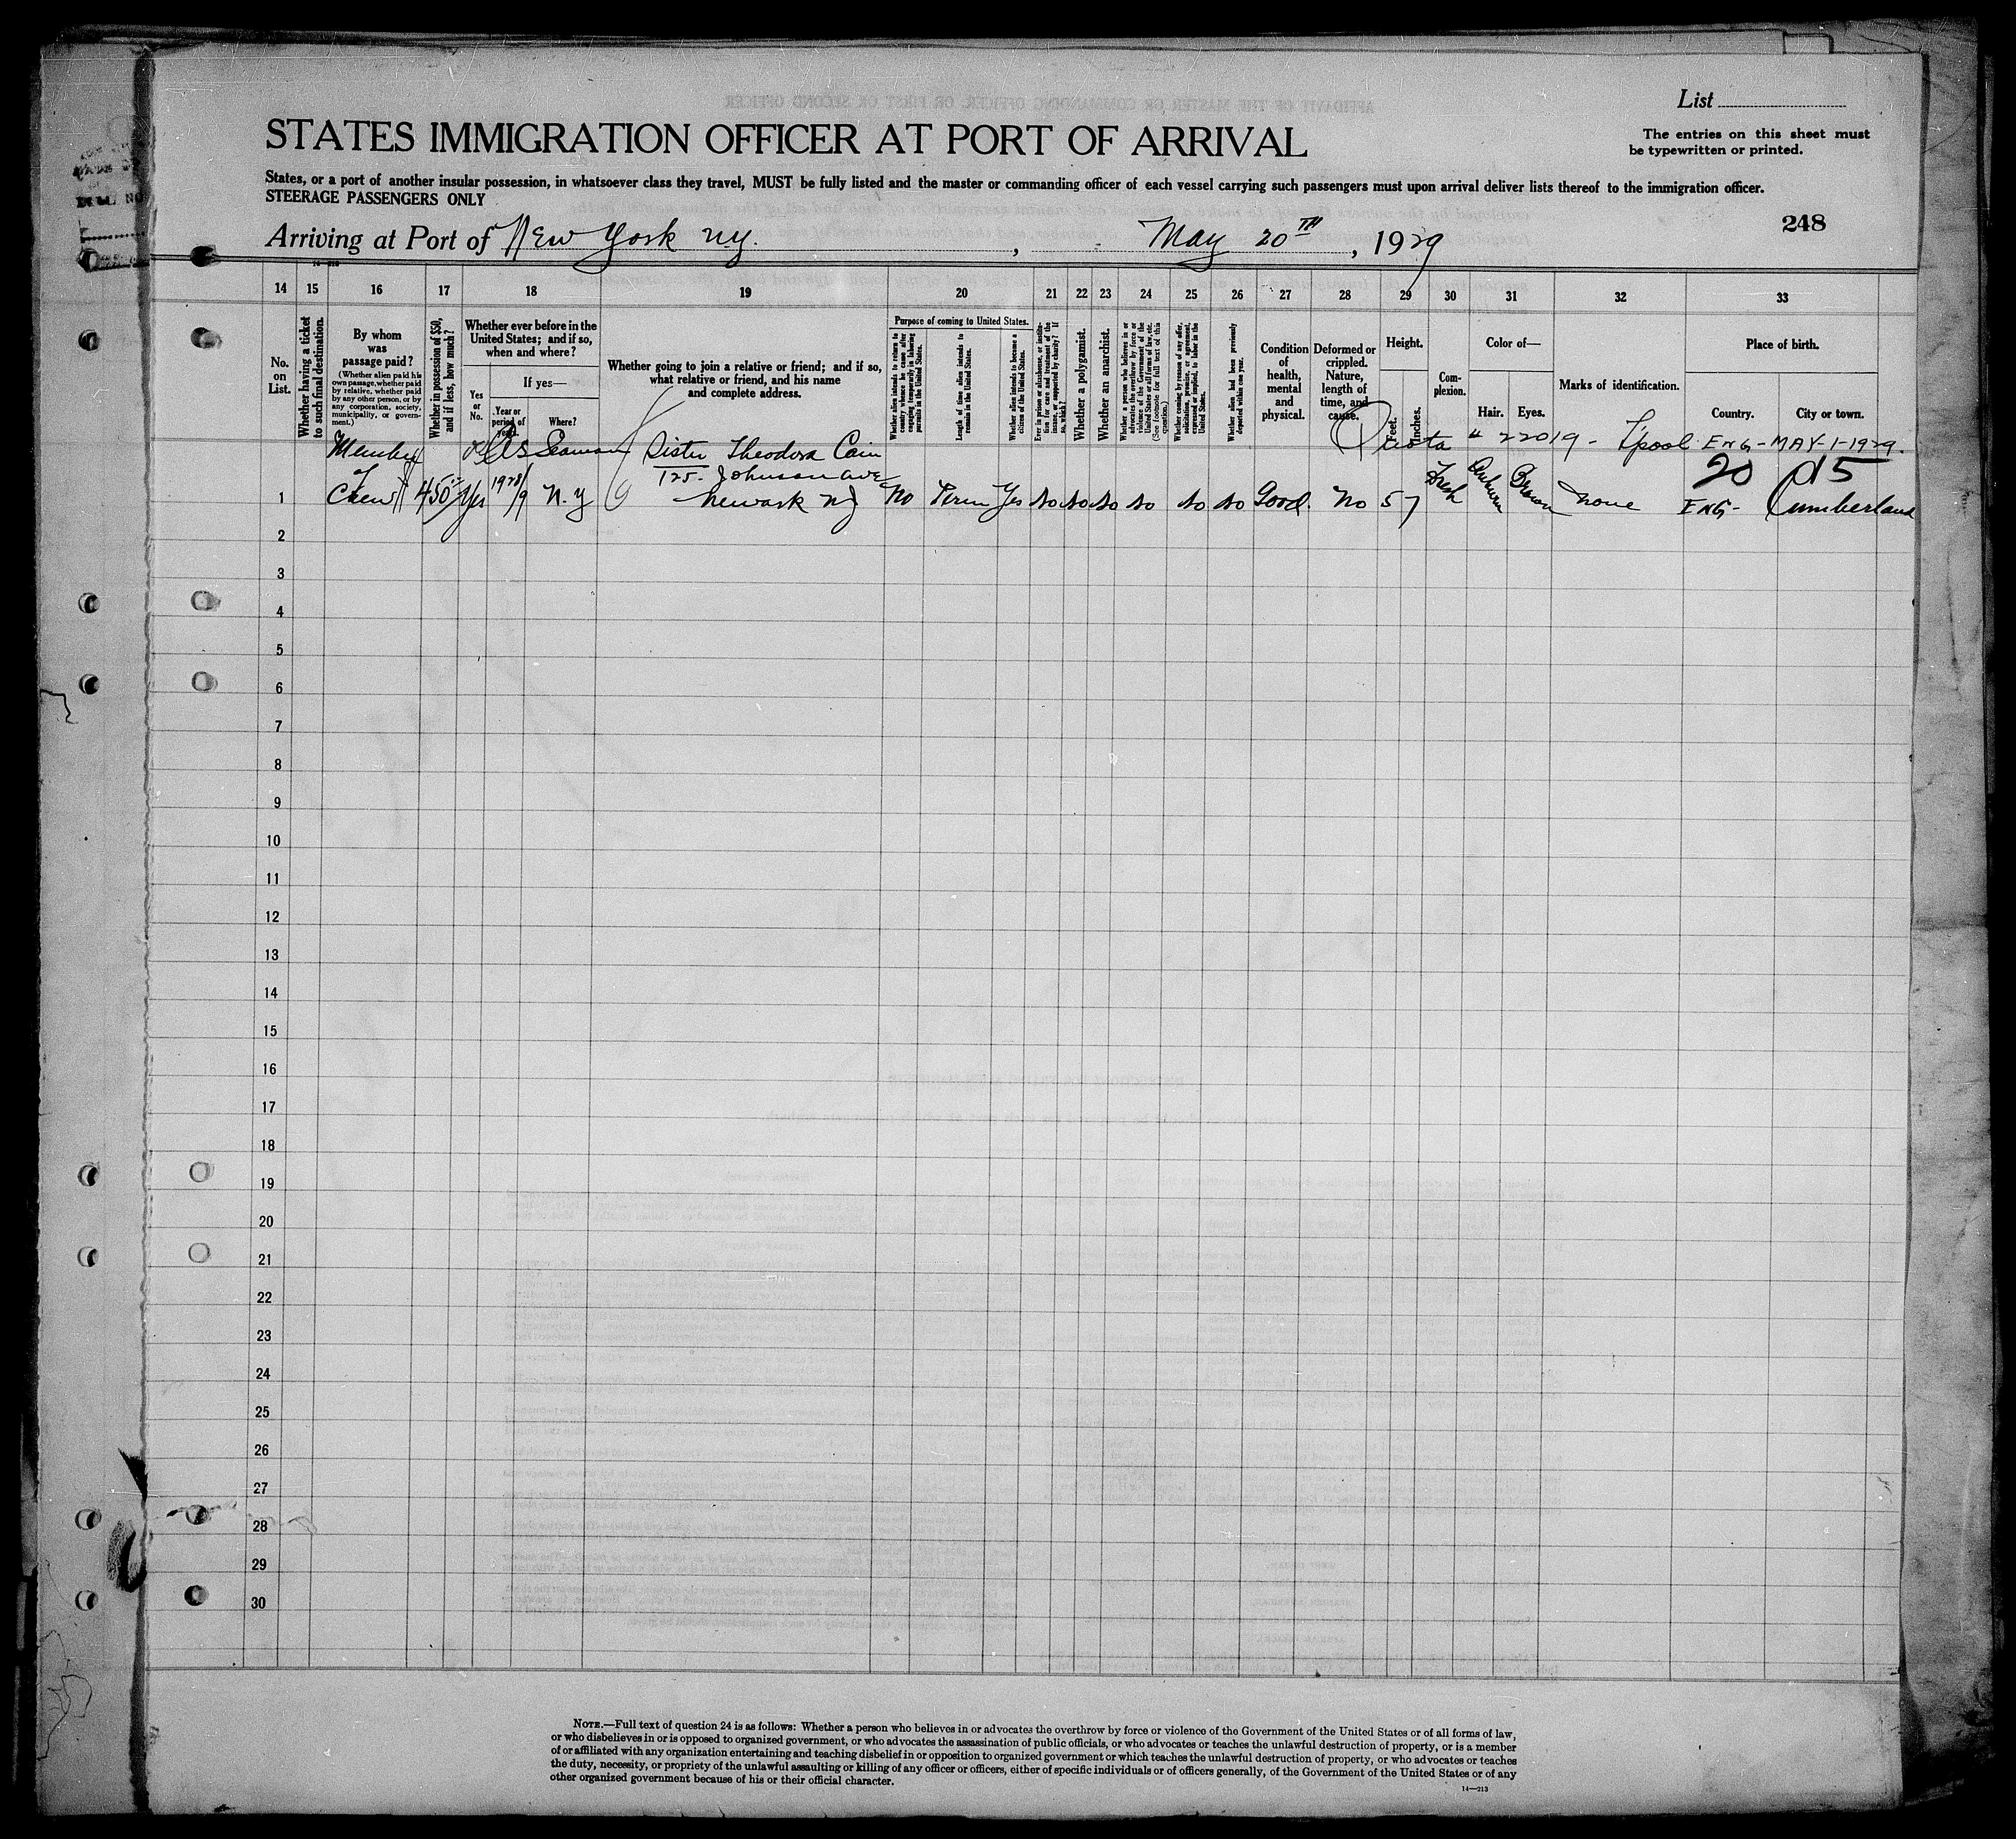 List
STATES IMMIGRATION OFFICER AT PORT OF ARRIVAL
The entries on this sheet must
be typewritten or printed.
States, or a port of another insular possession, in whatsoever class they travel, MUST be fully listed and the master or commanding officer of each vessel carrying such passengers must upon arrival deliver lists thereof to the immigration officer.
STEERAGE PASSENGERS ONLY
248
Arriving at Port of New York N.Y. , May 20TH, 1929
14 15 16 17 18 19 20 21 22 23 24 25 26 27 28 29 30 31 32 33
No. on List.
Whether having a ticket to such final destination.
By whom was passage paid?
(Whether alien paid his own passage, whether paid by relative, whether paid by any other person, or by any corporation, society, municipality, or government.)
Whether in possession of $50, and if less, how much?
Whether ever before in the United States; and if so, when and where?
Yes or No.
If yes—
Year or period of years.
Where?
Whether going to join a relative or friend; and if so, what relative or friend, and his name and complete address.
Purpose of coming to United States.
Whether alien intends to return to country whence he came after engaging temporarily in laboring pursuits in the United States.
Length of time alien intends to remain in the United States.
Whether alien intends to become a citizen of the United States.
Ever in prison or almshouse, or institution for care and treatment of the insane, or supported by charity? If so, which?
Whether a polygamist.
Whether an anarchist.
Whether a person who believes in or advocates the overthrow by force or violence of the Government of the United States or all forms of law, etc. (See footnote for full text of this question.)
Whether coming by reason of any offer, solicitation, promise, or agreement, expressed or implied, to labor in the United States.
Whether alien had been previously deported within one year.
Condition of health, mental and physical.
Deformed or crippled. Nature, length of time, and cause.
Height.
Feet.
Inches.
Complexion.
Color of—
Hair.
Eyes.
Marks of identification.
Place of birth.
Country.
City or town.
Member as Seaman Sister Theodora Cain Quota # 22019 - L'pool ENG - MAY-1-1929.
of 125. Johnson Ave 20
1 Crew 450 Yes 1928/9 N.Y Newark NJ No Perm Yes No No No No No No Good. No 5 7 Fresh Auburn Brown None ENG- Cumberland
2
3
4
5
6
7
8
9
10
11
12
13
14
15
16
17
18
19
20
21
22
23
24
25
26
27
28
29
30
NOTE.—Full text of question 24 is as follows: Whether a person who believes in or advocates the overthrow by force or violence of the Government of the United States or of all forms of law,
or who disbelieves in or is opposed to organized government, or who advocates the assassination of public officials, or who advocates or teaches the unlawful destruction of property, or is a member
of or affiliated with any organization entertaining and teaching disbelief in or opposition to organized government or which teaches the unlawful destruction of property, or who advocates or teaches
the duty, necessity, or propriety of the unlawful assaulting or killing of any officer or officers, either of specific individuals or of officers generally, of the Government of the United States or of any
other organized government because of his or their official character.
14—213